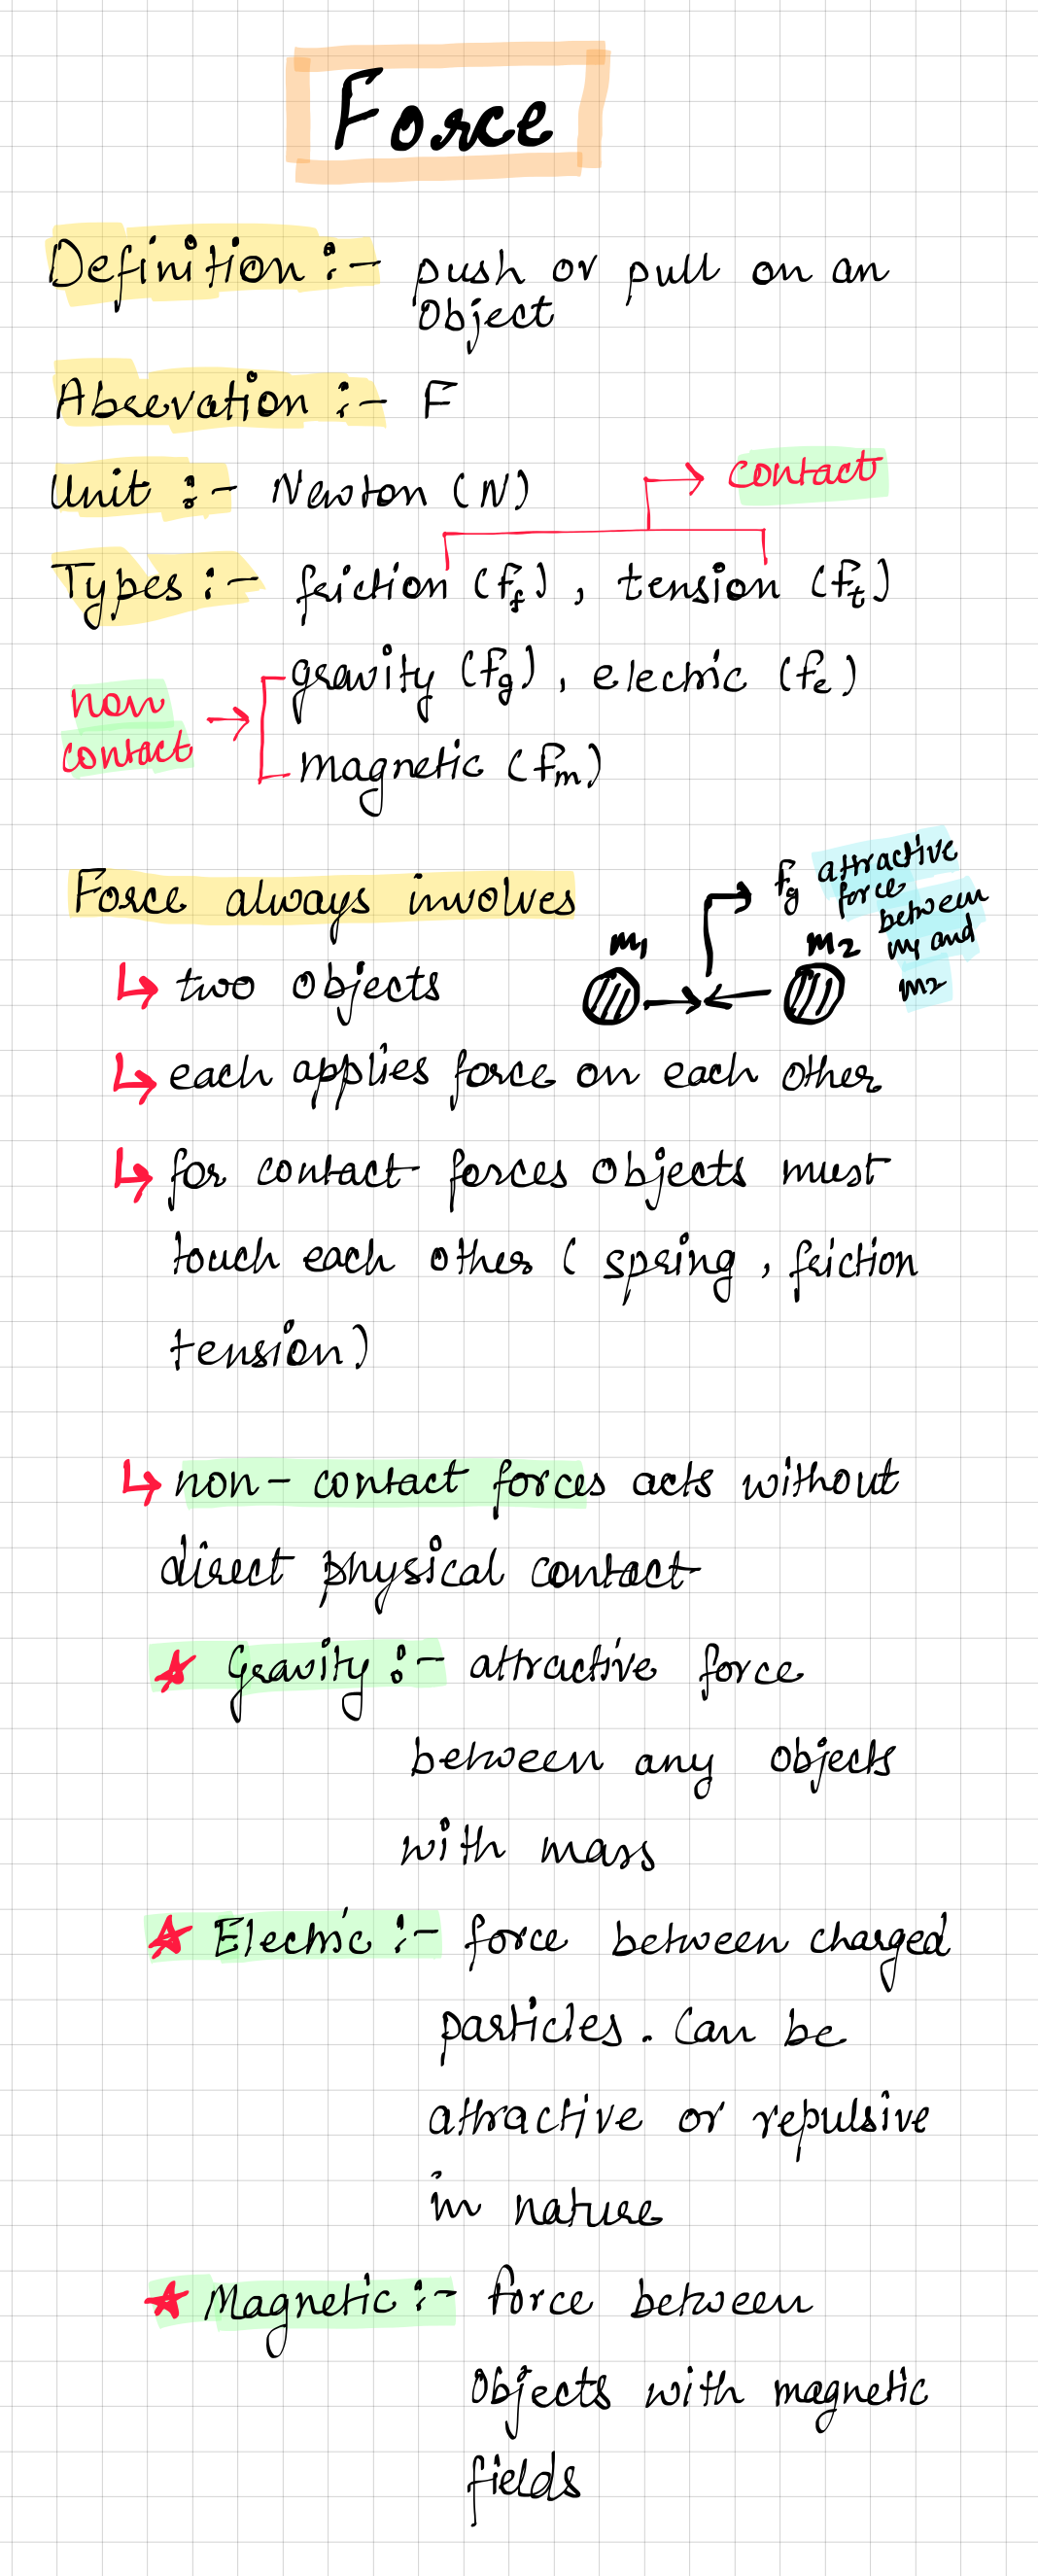 Force
Definition :- push or pull on an
Object
Abrevation :- F
contact
Unit :- Newton (N)
Types :- friction (Ff), tension (Ft)
gravity (Fg), electric (Fe)
non
contact
magnetic (Fm)
Fg attractive
force
between
m1 and
m2
Force always involves
m1 m2
two objects
each applies force on each other
for contact forces objects must
touch each other ( spring, friction
tension)
non - contact forces acts without
direct physical contact
Gravity :- attractive force
between any objects
with mass
Electric :- force between charged
particles. Can be
attractive or repulsive
in nature
Magnetic :- force between
Objects with magnetic
fields